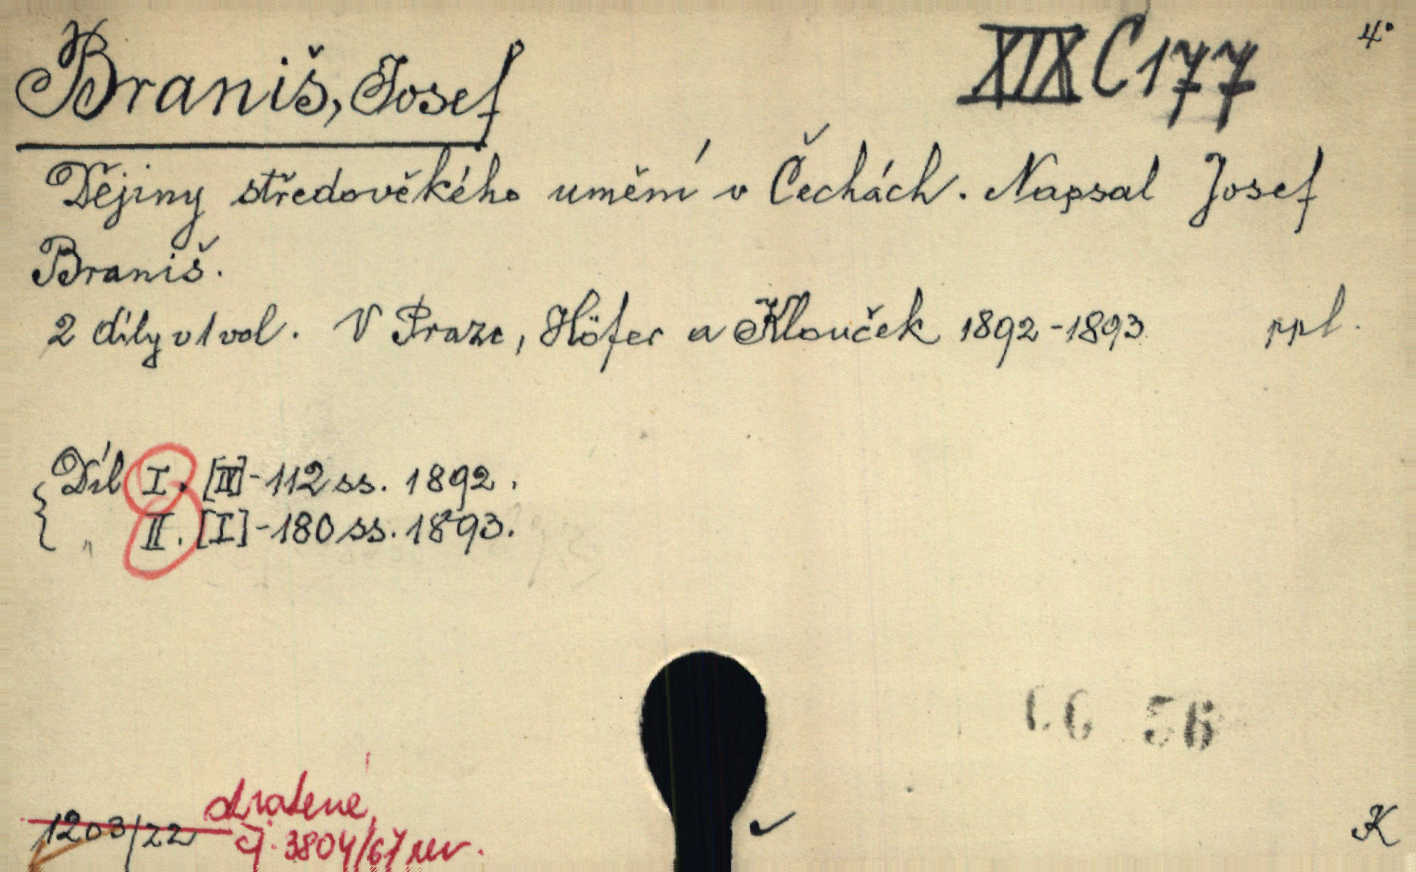 Braniš, Josef
XIX C 177
4°
Dějiny středověkého umění v Čechách. Napsal Josef
Braniš.
2 díly v 1 vol. V Praze, Höfer a Klouček 1892-1893 ppl.
Díl I. [IV]-112 ss. 1892.
„ II. [I]-180 ss. 1893.
56
ztracené
1203/22
čj. 3804/67 rev.
K